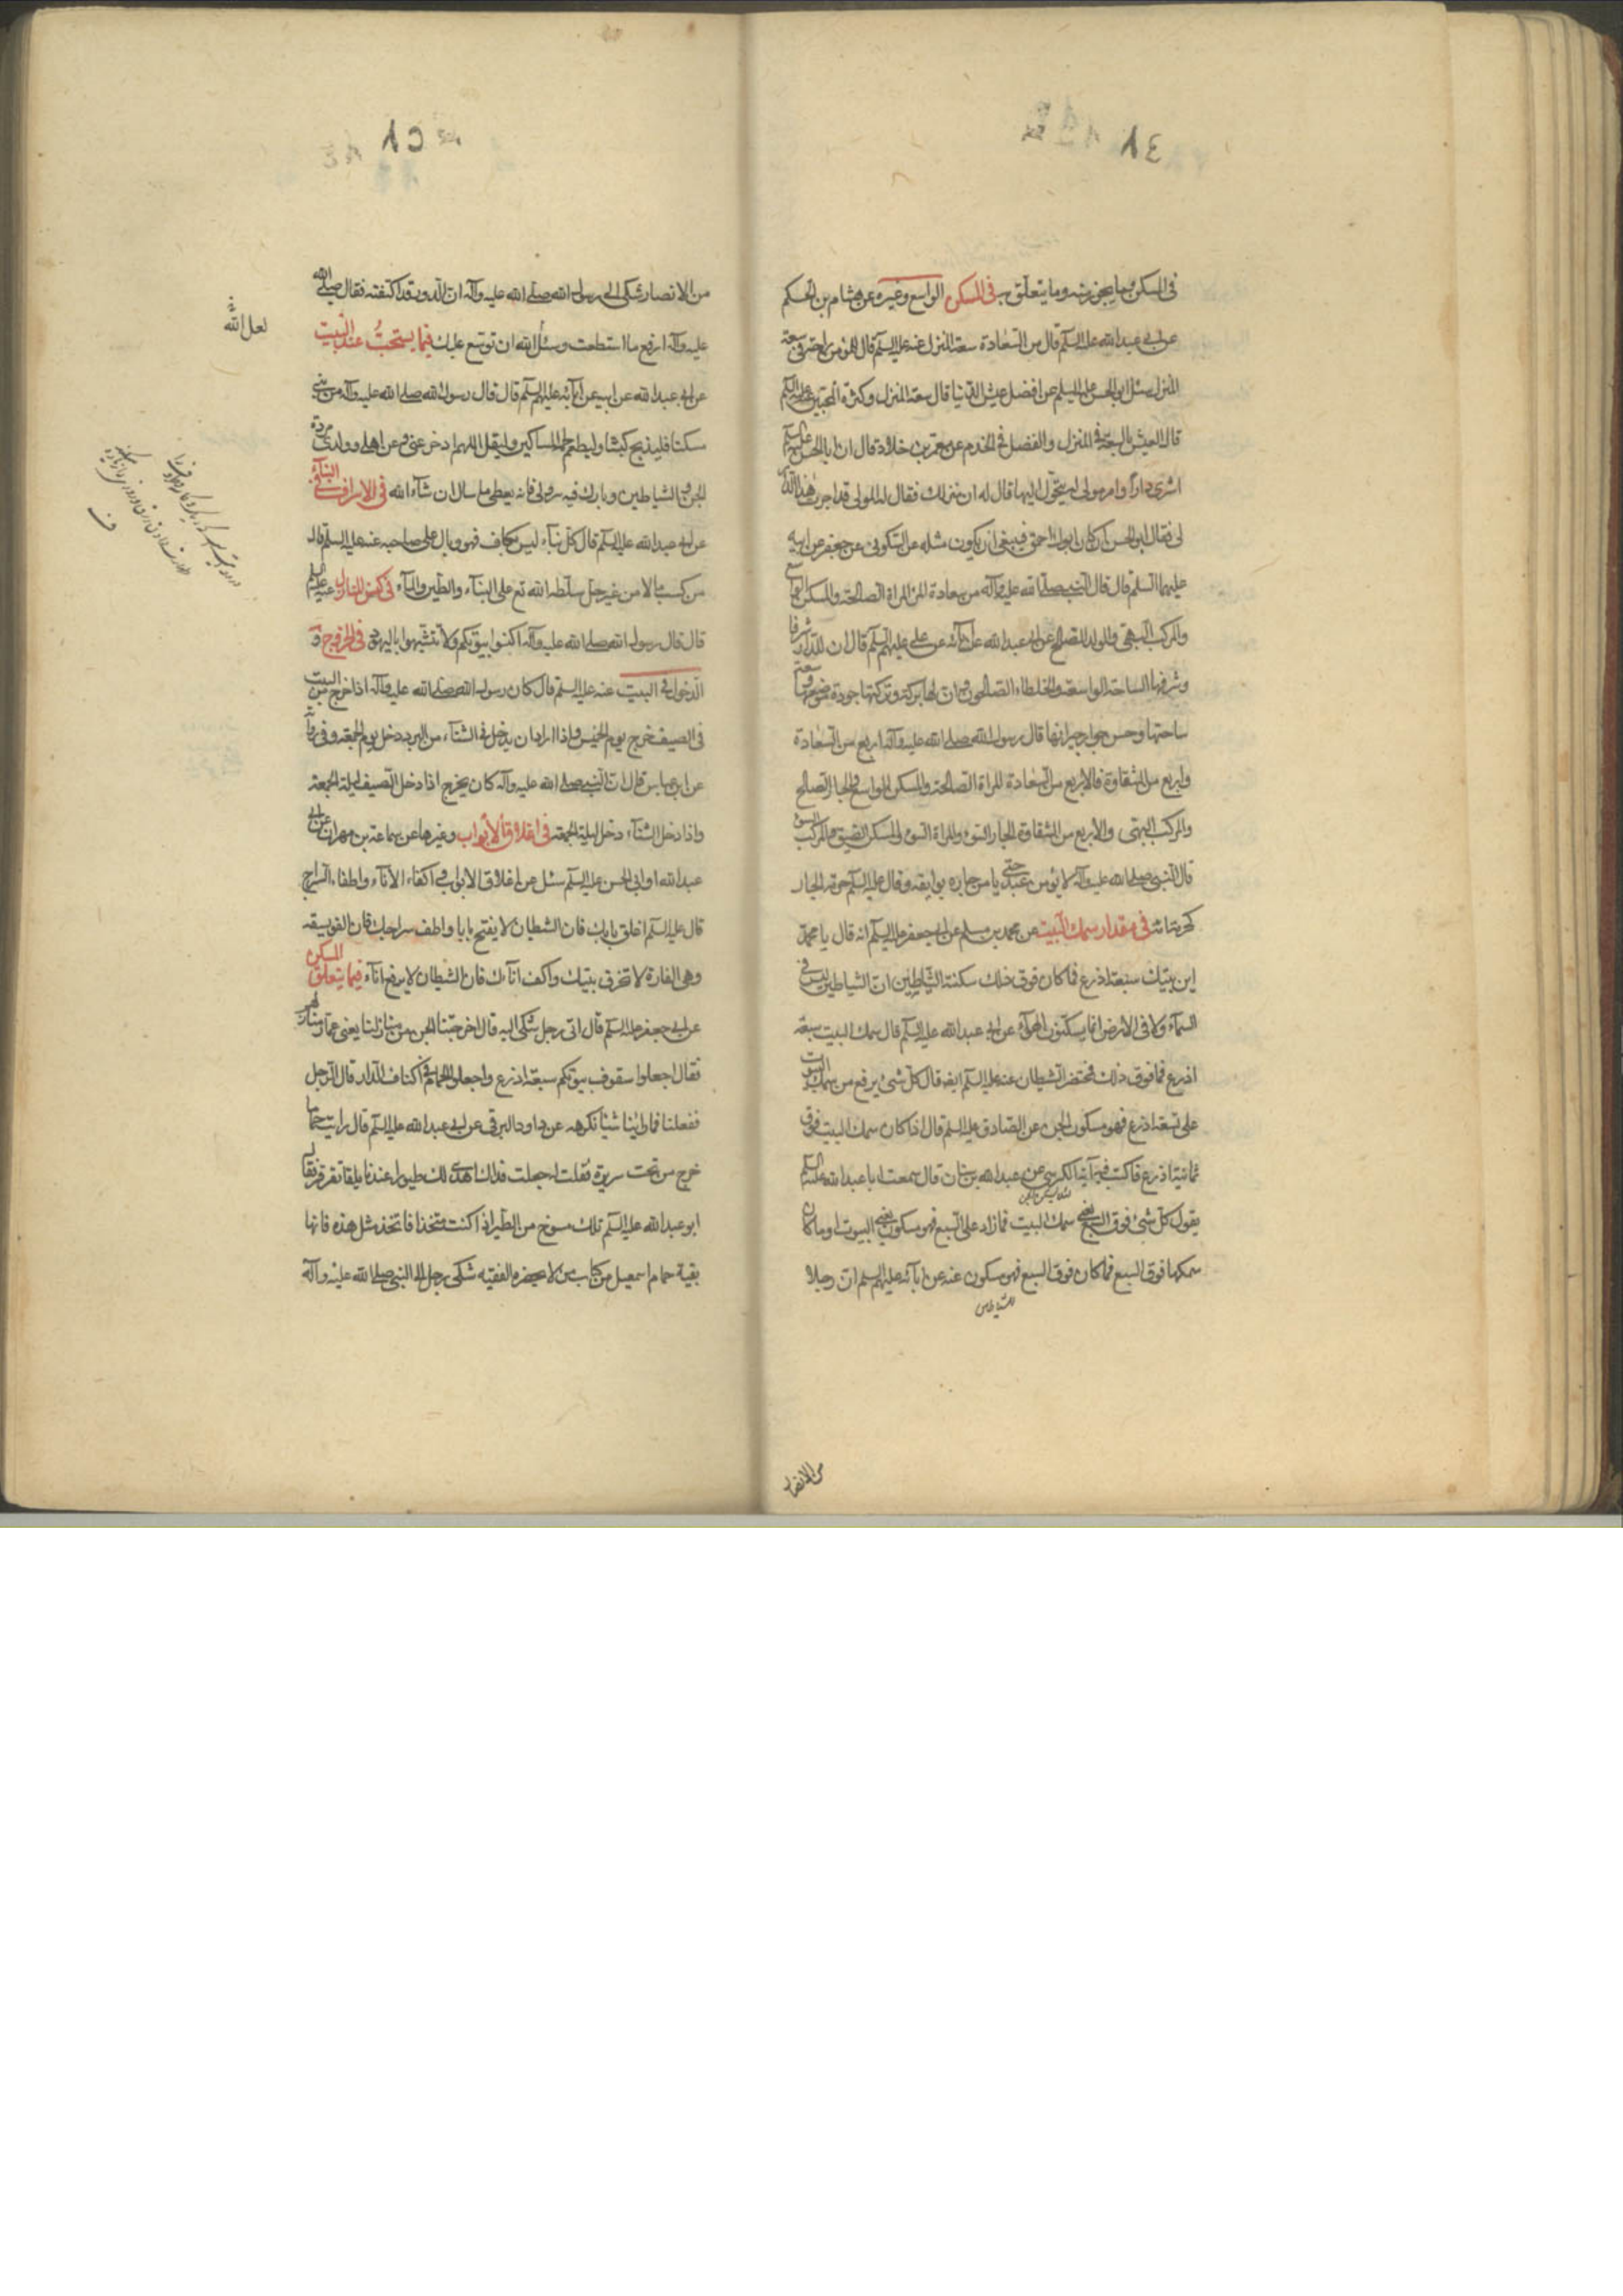 في المسكن وما يجوز منه وما يتعلق به في المسكن الواسع وغيره عن هشام بن الحكم
عن ابي عبد الله عليه السلم قال من السعادة سعة المنزل عنه عليه السلم قال للمؤمن راحة في سعة
المنزل سئل ابو الحسن عليه السلم عن افضل عيش الدنيا قال سعة المنزل وكثرة المحبين عنه عليه السلم
قال العيش السعة في المنزل والفضل في الخدم عن معمر بن خلاد قال ان ابا الحسن عليه السلم
اشترى دارا وامر مولى له يتحول اليها قال له ان منزلك فقال له المولى قد اجزت هذه الدار
لي فقال ابو الحسن ان كان ابوك احمق فينبغي ان يكون مثله عن السكوني عن جعفر عن ابيه
عليهما السلم قال قال النبي صلى الله عليه وآله من سعادة المرء المراة الصالحة والمسكن الواسع
والمركب البهي والولد الصالح عن ابي عبد الله عن آبائه عن علي عليهم السلم قال ان للدار شرفا
وشرفها الساحة الواسعة والخلطاء الصالحون وان لها بركة وبركتها جودة موضعها وسعة
ساحتها وحسن جوار جيرانها قال رسول الله صلى الله عليه وآله اربع من السعادة
واربع من الشقاوة فالاربع من السعادة المراة الصالحة والمسكن الواسع والجار الصالح
والمركب البهي والاربع من الشقاوة الجار السوء والمراة السوء والمسكن الضيق والمركب السوء
قال النبي صلى الله عليه وآله لا يؤمن عبد حتى يامن جاره بوايقه وقال عليه السلم حرمة الجار
كحرمة امه في مقدار سمك البيت عن محمد بن مسلم عن ابي جعفر عليه السلم انه قال يا محمد
ابن بيتك سبعة اذرع فما كان فوق ذلك سكنة الشياطين ان الشياطين ليس في
السماء ولا في الارض انما يسكنون الهواء عن ابي عبد الله عليه السلم قال سمك البيت سبعة
اذرع فما فوق ذلك فمحتضر الشيطان عنه عليه السلم ايضا قال كل شئ يرفع من سمك البيوت
على تسعة اذرع فهو مسكون الجن عن الصادق عليه السلم قال اذا كان سمك البيت فوق
ثمانية اذرع فاكتب فيه آية الكرسي عن عبد الله بن سنان قال سمعت ابا عبد الله عليه السلم
يقول كل شئ فوق السبع يعني سمك البيت فما زاد على السبع فهو مسكون يعني البيوت او ما كان
سمكها فوق السبع فما كان فوق السبع فهو مسكون عنه عن آبائه عليهم السلم ان رجلا
للشياطين
من الانصار
من الانصار شكى الى رسول الله صلى الله عليه وآله ان الدور قد اكتنفته فقال صلى الله
عليه وآله ارفع ما استطعت وسئل الله ان توسع عليك فيما يستحب عند البيت
عن ابي عبد الله عن ابيه عن آبائه عليهم السلم قال قال رسول الله صلى الله عليه وآله من بنى
مسكنا فليذبح كبشا وليطعم لحمه المساكين وليقل اللهم ادحر عني وعن اهلي وولدي مردة
الجن والشياطين وبارك فيه بنزولي فانه يعطى ما سال ان شآء الله في الاسراف في البنآء
عن ابي عبد الله عليه السلم قال كل بنآء ليس بكفاف فهو وبال على صاحبه عنه عليه السلم قال
من كسب مالا من غير حل سلطه الله تع على البنآء والطين والمآء في كنس المنازل عنه عليه السلم
قال قال رسول الله صلى الله عليه وآله اكنسوا بيوتكم ولا تتشبهوا باليهود في الخروج و
الدخول في البيت عنه عليه السلم قال كان رسول الله صلى الله عليه وآله اذا خرج من البيت
في الصيف خرج يوم الخميس واذا اراد ان يدخل في الشتآء من البرد دخل يوم الجمعة وفي رواية
عن ابن عباس قال ان النبي صلى الله عليه وآله كان يخرج اذا دخل الصيف ليلة الجمعة
واذا دخل الشتآء دخل ليلة الجمعة في اغلاق الابواب وغيرها عن سماعة بن مهران عن ابي
عبد الله او ابي الحسن عليه السلم سئل عن اغلاق الابواب واكفاء الانآء واطفاء السراج
قال عليه السلم اغلق بابك فان الشيطان لا يفتح بابا واطف سراجك فان الفويسقه
وهي الفارة لا تحرق بيتك واكف انآءك فان الشيطان لا يرفع انآء فيما يتعلق المسكن
عن ابي جعفر عليه السلم قال اتى رجل شكى اليه قال اخرجتنا الجن من منازلنا يعني عمار منازلهم
فقال اجعلوا سقوف بيوتكم سبعة اذرع واجعلوا الحمام في اكناف الدار قال الرجل
ففعلنا فما راينا شيئا نكرهه عن داود البرقي عن ابي عبد الله عليه السلم قال رايت حماما
خرج من تحت سريره فقلت جعلت فداك اهدى لك طيورا عندنا بلقا تقرقر فقال
ابو عبد الله عليه السلم تلك مسوخ من الطير اذا كنت متخذا فاتخذ مثل هذه فانها
بقية حمام اسمعيل من كتاب من لا يحضره الفقيه شكى رجل الى النبي صلى الله عليه وآله
لعل الله